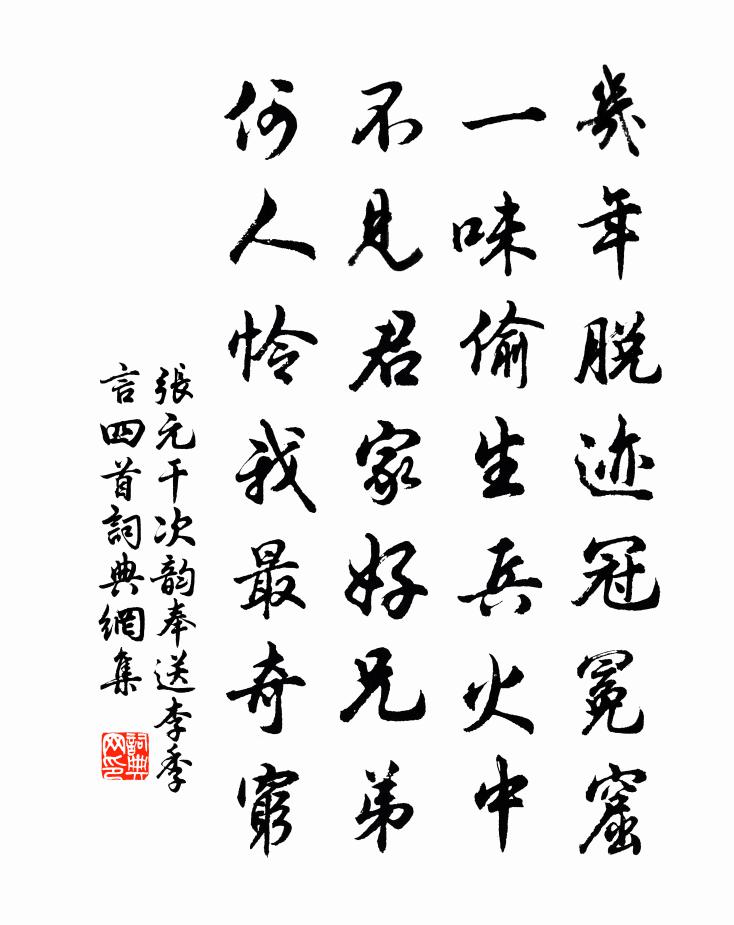 幾年脱迹冠冕窟
一味偷生兵火中
不見君家好兄弟
何人怜我最奇窮
張元干次韵奉送李季
言四首詞典網集
詞典网印